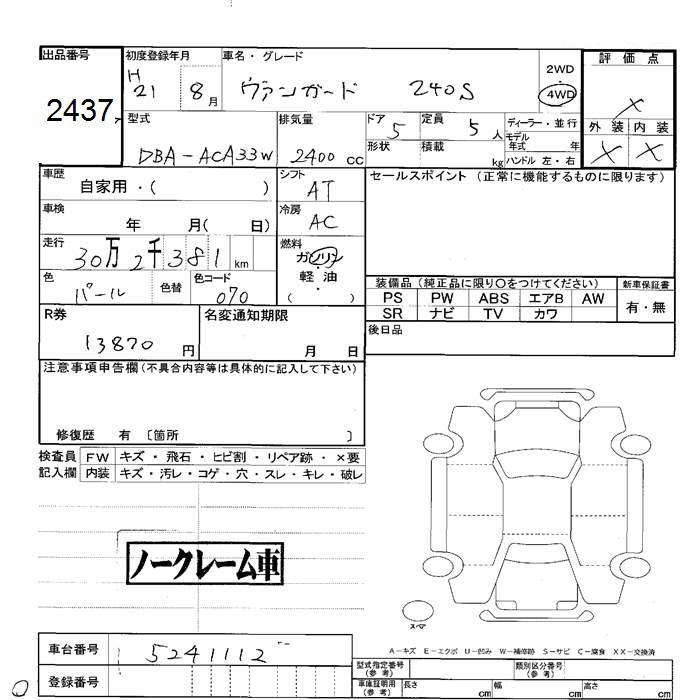 出品番号
2437
初度登録年月
H
21 8月
車名・グレード
ヴァンガード 240S
2WD
・
4WD
評価点
×
外装 内装
× ×
型式
DBA-ACA33W
排気量
2400 cc
ドア 5
形状
定員 5 人
積載 kg
ディーラー・並行
モデル
年式 年
ハンドル 左・右
車歴
自家用・( )
シフト
AT
セールスポイント (正常に機能するものに限ります)
車検
年 月( 日)
冷房
AC
走行
30万2千381 km
燃料
ガソリン
・
軽油
( )
色
パール
色替
色コード
070
装備品 (純正品に限り〇をつけてください)
新車保証書
PS PW ABS エアB AW
SR ナビ TV カワ
有・無
R券
13870 円
名変通知期限
月 日
後日品
注意事項申告欄(不具合内容等は具体的に記入して下さい)
修復歴 有 〔箇所 〕
検査員
記入欄
FW キズ・飛石・ヒビ割・リペア跡・×要
内装 キズ・汚レ・コゲ・穴・スレ・キレ・破レ
ノークレーム車
スペア
A-キズ E-エクボ U-凹み W-補修跡 S-サビ C-腐食 XX-交換済
車台番号
5241112
登録番号
型式指定番号
(参考)
類別区分番号
(参考)
車庫証明用
(参考)
長さ cm 幅 cm 高さ cm